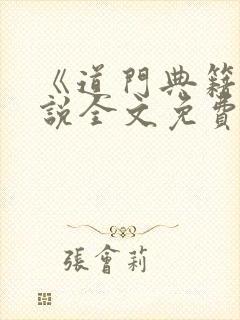 《道門典籍
說全文免費
張會莉